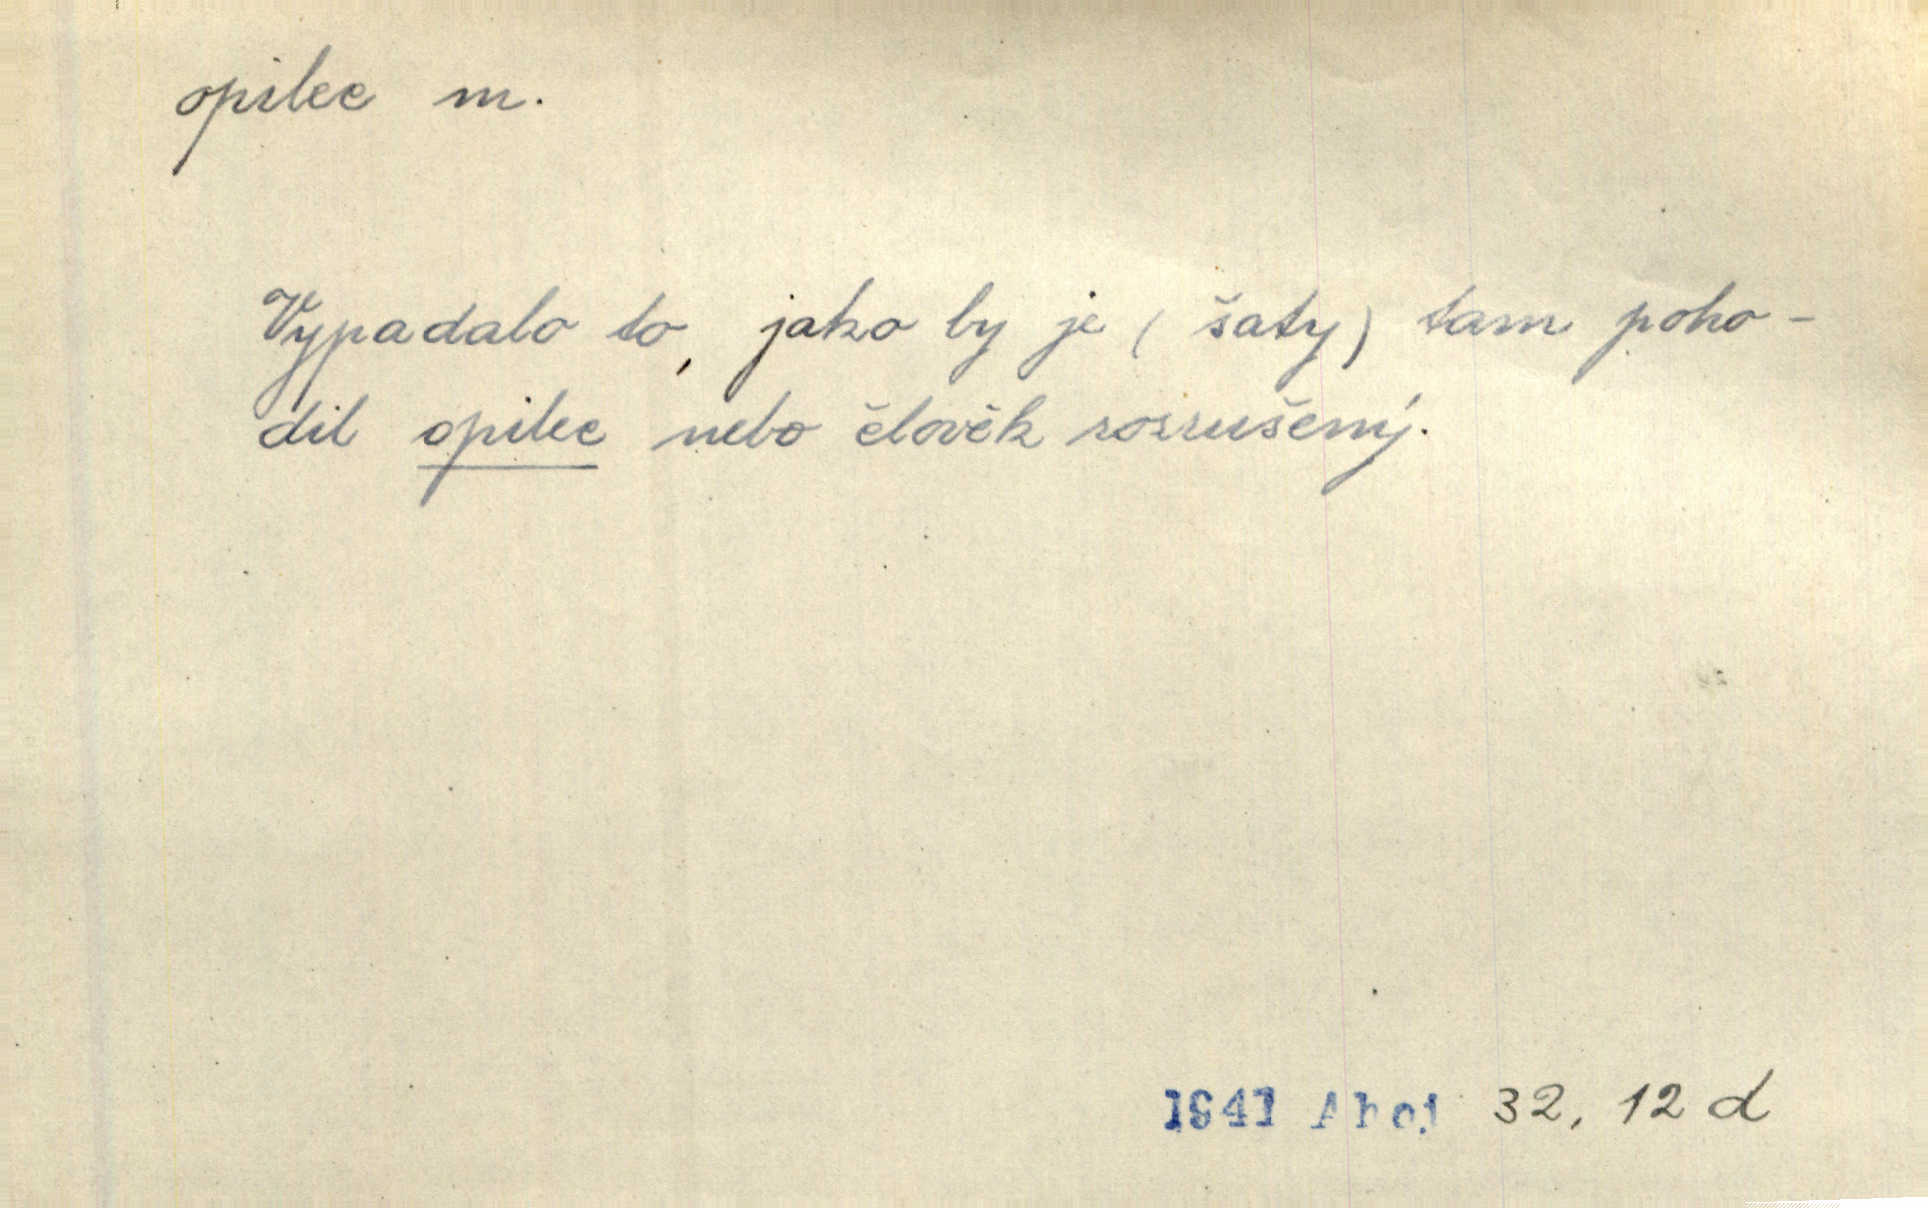 opilec m.
Vypadalo to, jako by je (šaty) tam poho-
dil opilec nebo člověk rozrušený.
1941 Ahoj 32, 12 d